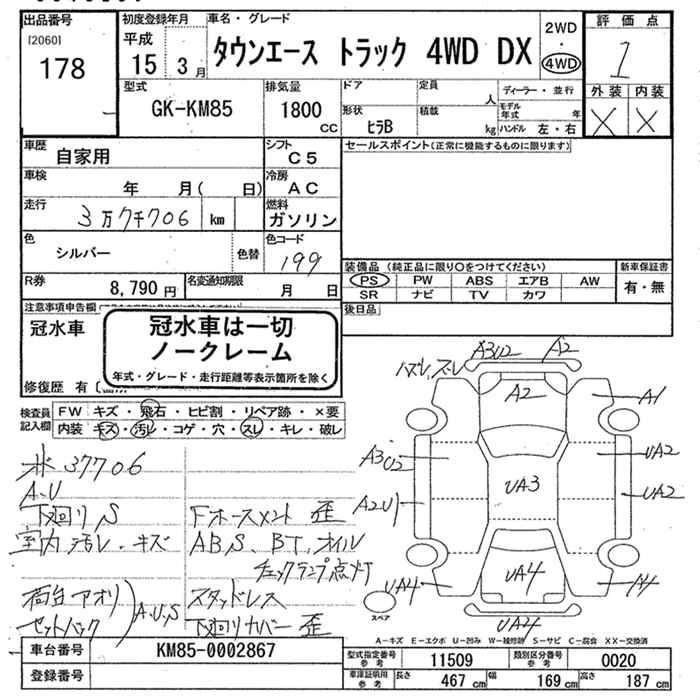 出品番号
[2060]
178
初度登録年月
平成
15 3月
車名・グレード
タウンエース トラック 4WD DX
2WD
・
4WD
評価点
1
外装 内装
X X
型式
GK-KM85
排気量
1800
CC
ドア
形状
ヒラB
定員
人
積載
kg
ディーラー・並行
モデル年式 年
ハンドル 左・右
車歴
自家用
シフト
C5
車検
年 月( 日)
冷房
AC
走行
3万7千706 km
燃料
ガソリン
色
シルバー
色替
色コード
199
R券
8,790円
名変通知期限
月 日
セールスポイント(正常に機能するものに限ります)
装備品 (純正品に限り○をつけてください)
PS PW ABS エアB AW
SR ナビ TV カワ
新車保証書
有・無
後日品
注意事項申告欄
冠水車
冠水車は一切
ノークレーム
年式・グレード・走行距離等表示箇所を除く
修復歴 有
検査員
記入欄
FW キズ・飛石・ヒビ割・リペア跡・×要
内装 キズ・汚レ・コゲ・穴・スレ・キレ・破レ
米 37706
A、U
下廻リ、S
室内 汚レ・キズ
荷台 アオリ
セットバック
A、U、S
Fホースメント 歪
ABS、BT、オイル
チェックランプ点灯
スタッドレス
下廻リカバー 歪
ハズレ、ズレ
A3U2
A2
A2
A1
A3U2
UA2
A2U1
UA3
UA2
UA4
UA4
A4
UA4
スペア
A-キズ E-エクボ U-凹み W-補修跡 S-サビ C-腐食 XX-交換済
車台番号
KM85-0002867
登録番号
型式指定番号
参考
11509
類別区分番号
参考
0020
車庫証明用
参考
長さ 467 cm
幅 169 cm
高さ 187 cm